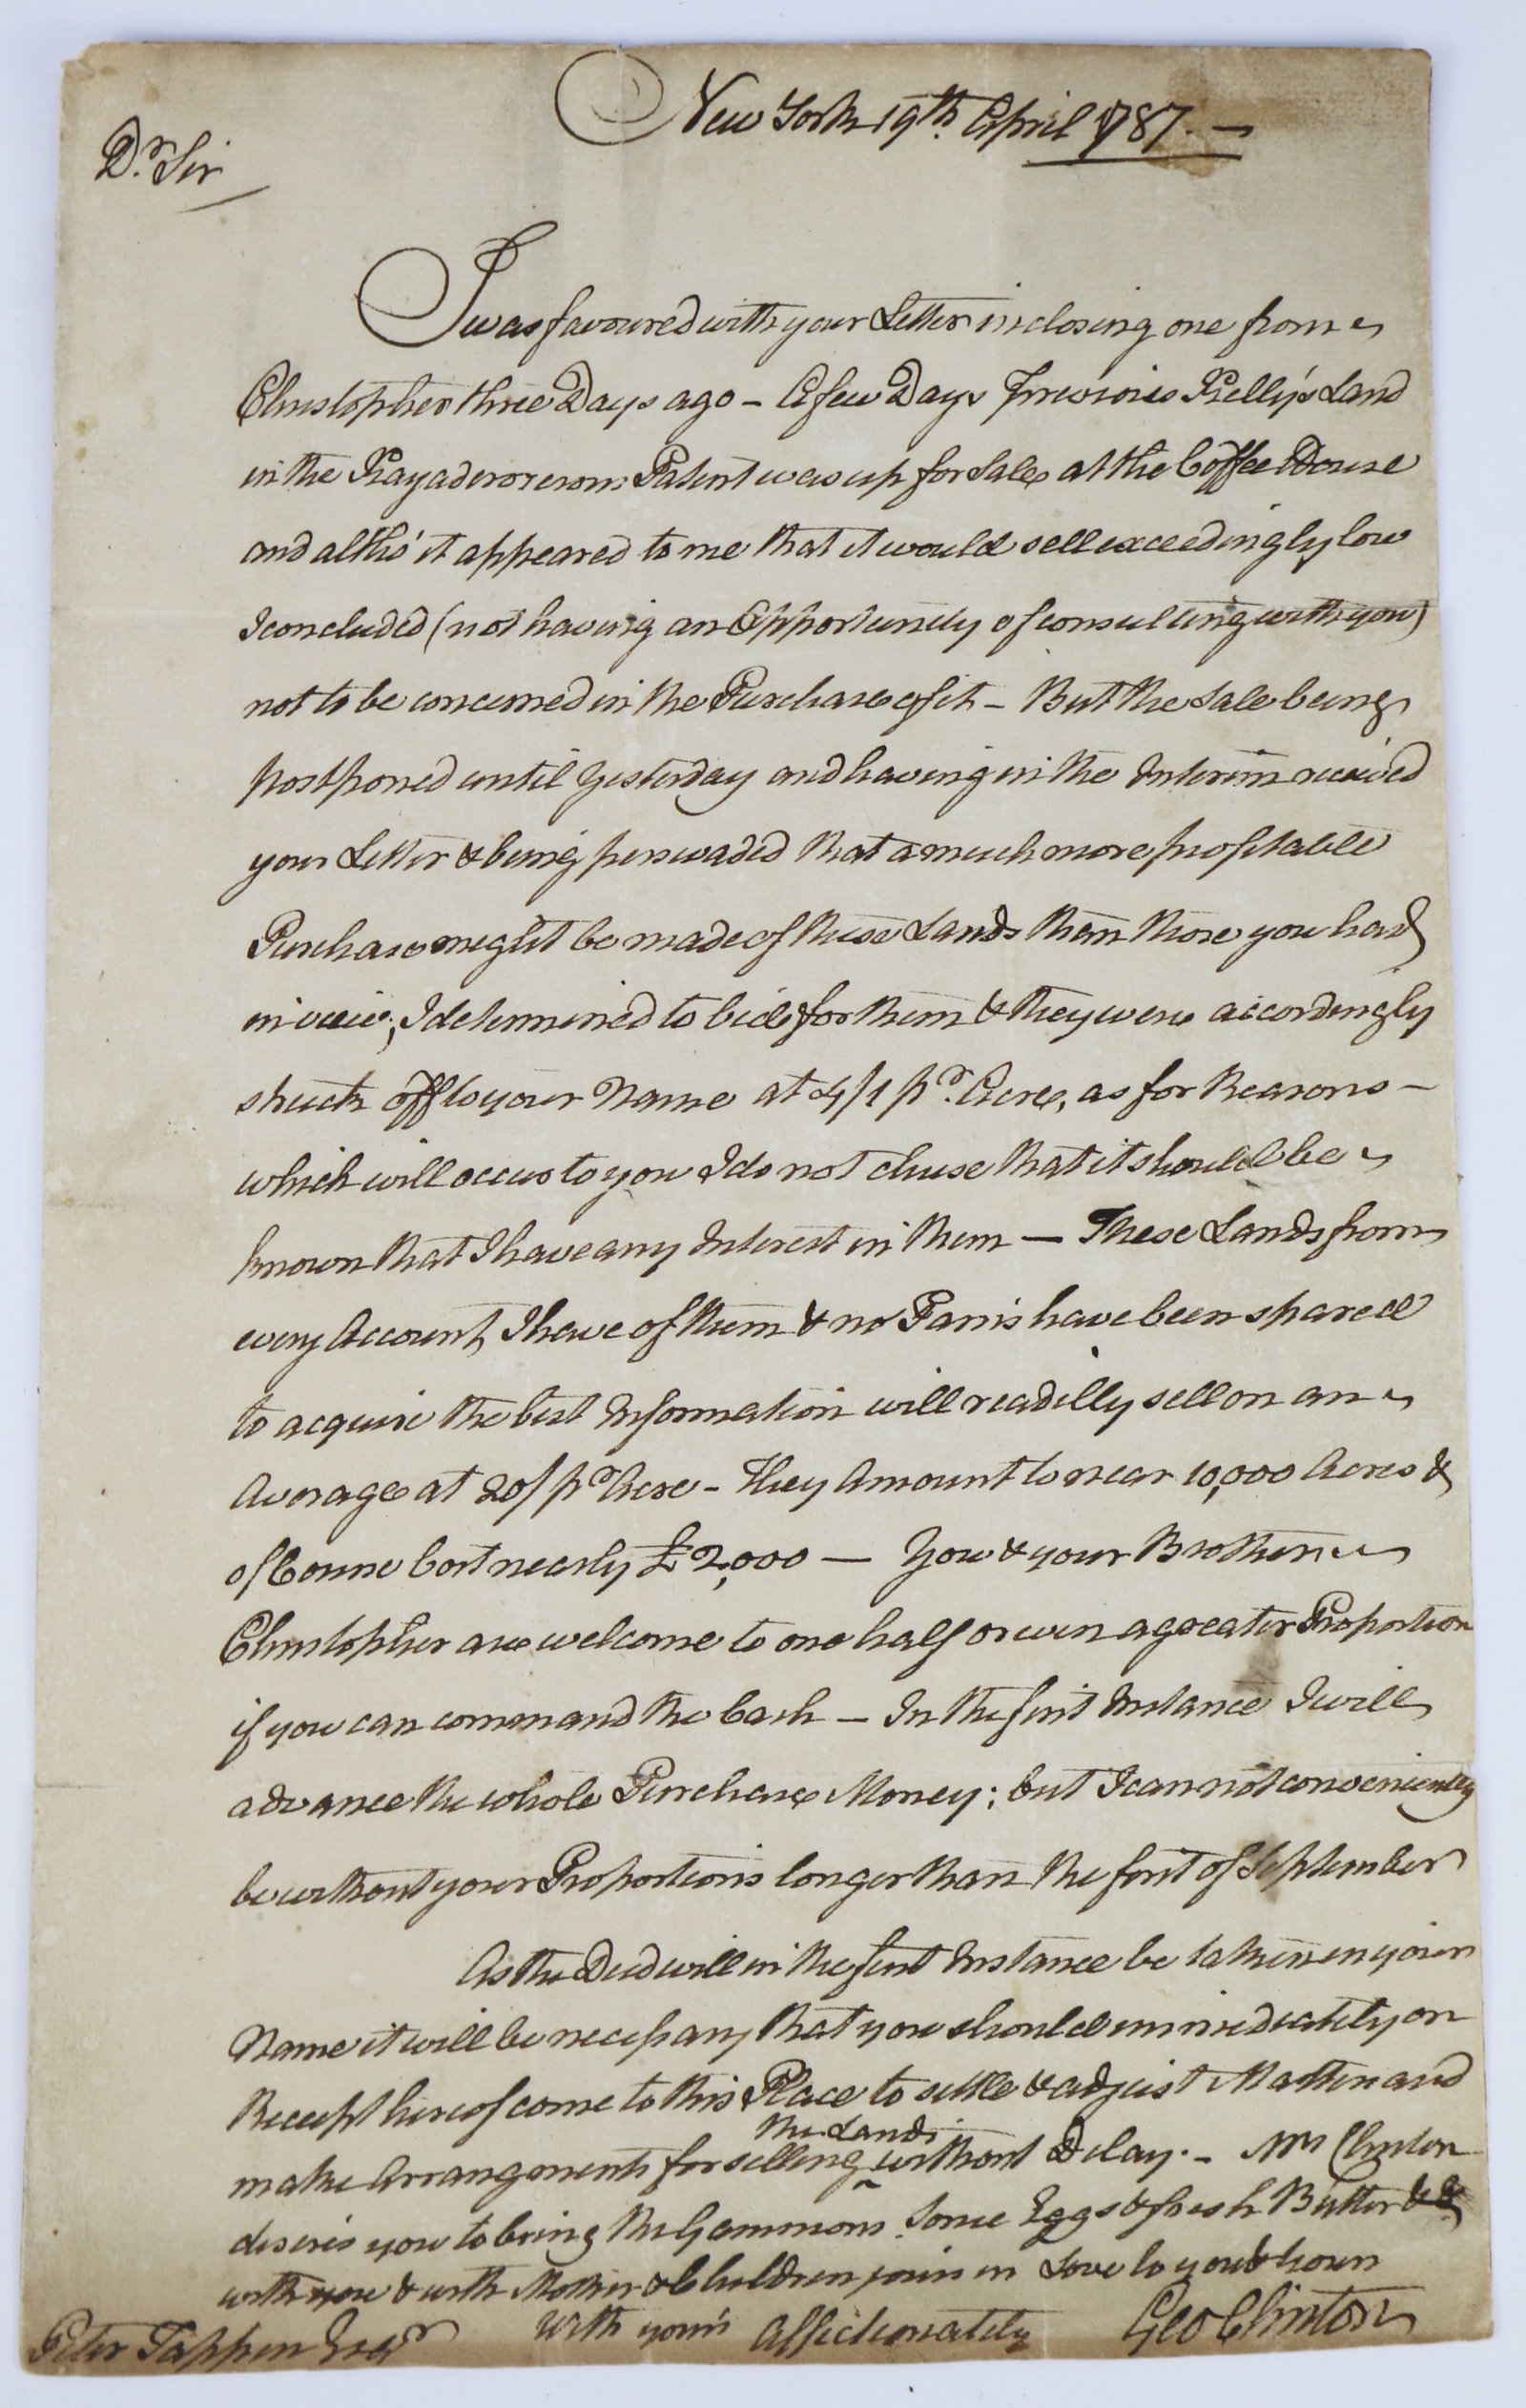 New York 19th. April 1787. —
Dr. Sir
I was favoured with your Letter inclosing one from
Christopher three Days ago – A few Days previous Kelly's Land
in the Kayaderosserom Patent was up for Sale at the Coffee House
and altho' it appeared to me that it would sell exceedingly low
I concluded (not having an Opportunity of consulting with you)
not to be concerned in the Purchase of it – But the Sale being
postponed until Yesterday and having in the Interim received
your Letter & being perswaded that a much more profitable
Purchase might be made of these Lands than those you had
in view, I determined to bid for them & they were accordingly
struck off to your Name at 4/1 pr. Acre, as for Reasons –
which will occur to you I do not chuse that it should be
known that I have any Interest in them — These Lands from
every Account I have of them & no Pains have been spared
to acquire the best Information will readilly sell on an
Average at 20/ pr Acre – They Amount to near 10,000 Acres &
of Course Cost nearly £2,000 — You & your Brother
Christopher are welcome to one half or even a greater Proportion
if you can command the Cash — In the first Instance I will
advance the whole Purchase Money; but I can not conveniently
be without your Proportions longer than the first of September
As the Deed will in the first Instance be taken in your
Name it will be necessary that you should immediately on
Receipt hereof come to this Place to settle & adjust Matters and
make Arrangements for selling the Lands without Delay. – Mrs Clinton
desires you to bring the Gammons Some Eggs & fresh Butter &
with you & with Mother & Children joins in Love to you &
with yours Affectionately Geo Clinton
Peter Tappen Esqr